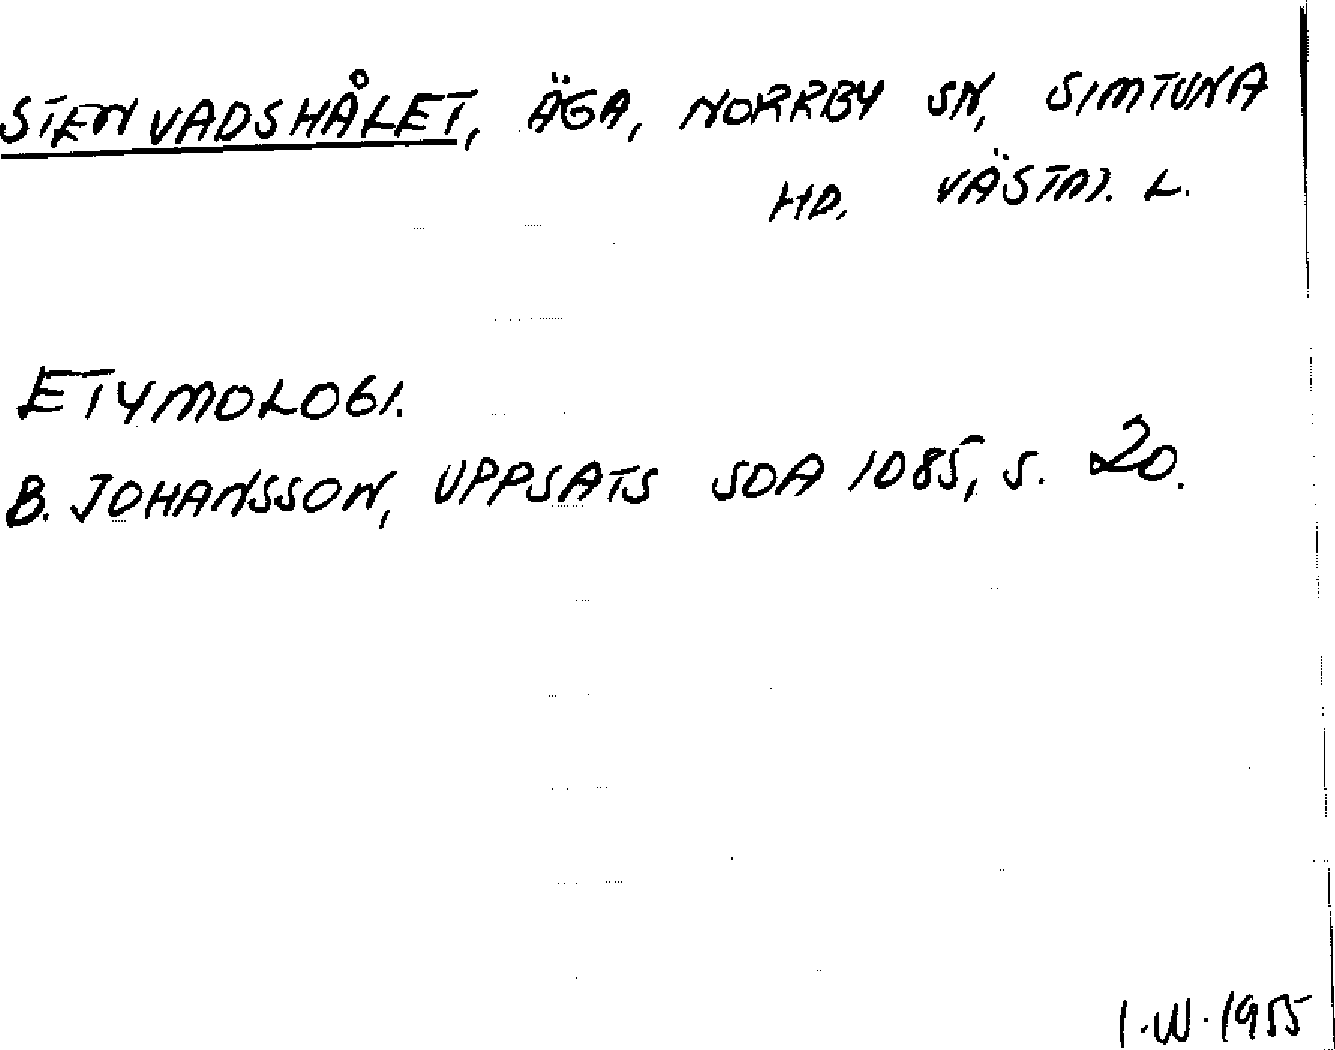 STENVADSHÅLET, ÄGA, NORRBY SN, SIMTUNA
HD. VÄSTM. L.
ETYMOLOGI.
B. JOHANSSON, UPPSATS SOA 1085, S. 20.
I.W. 1955